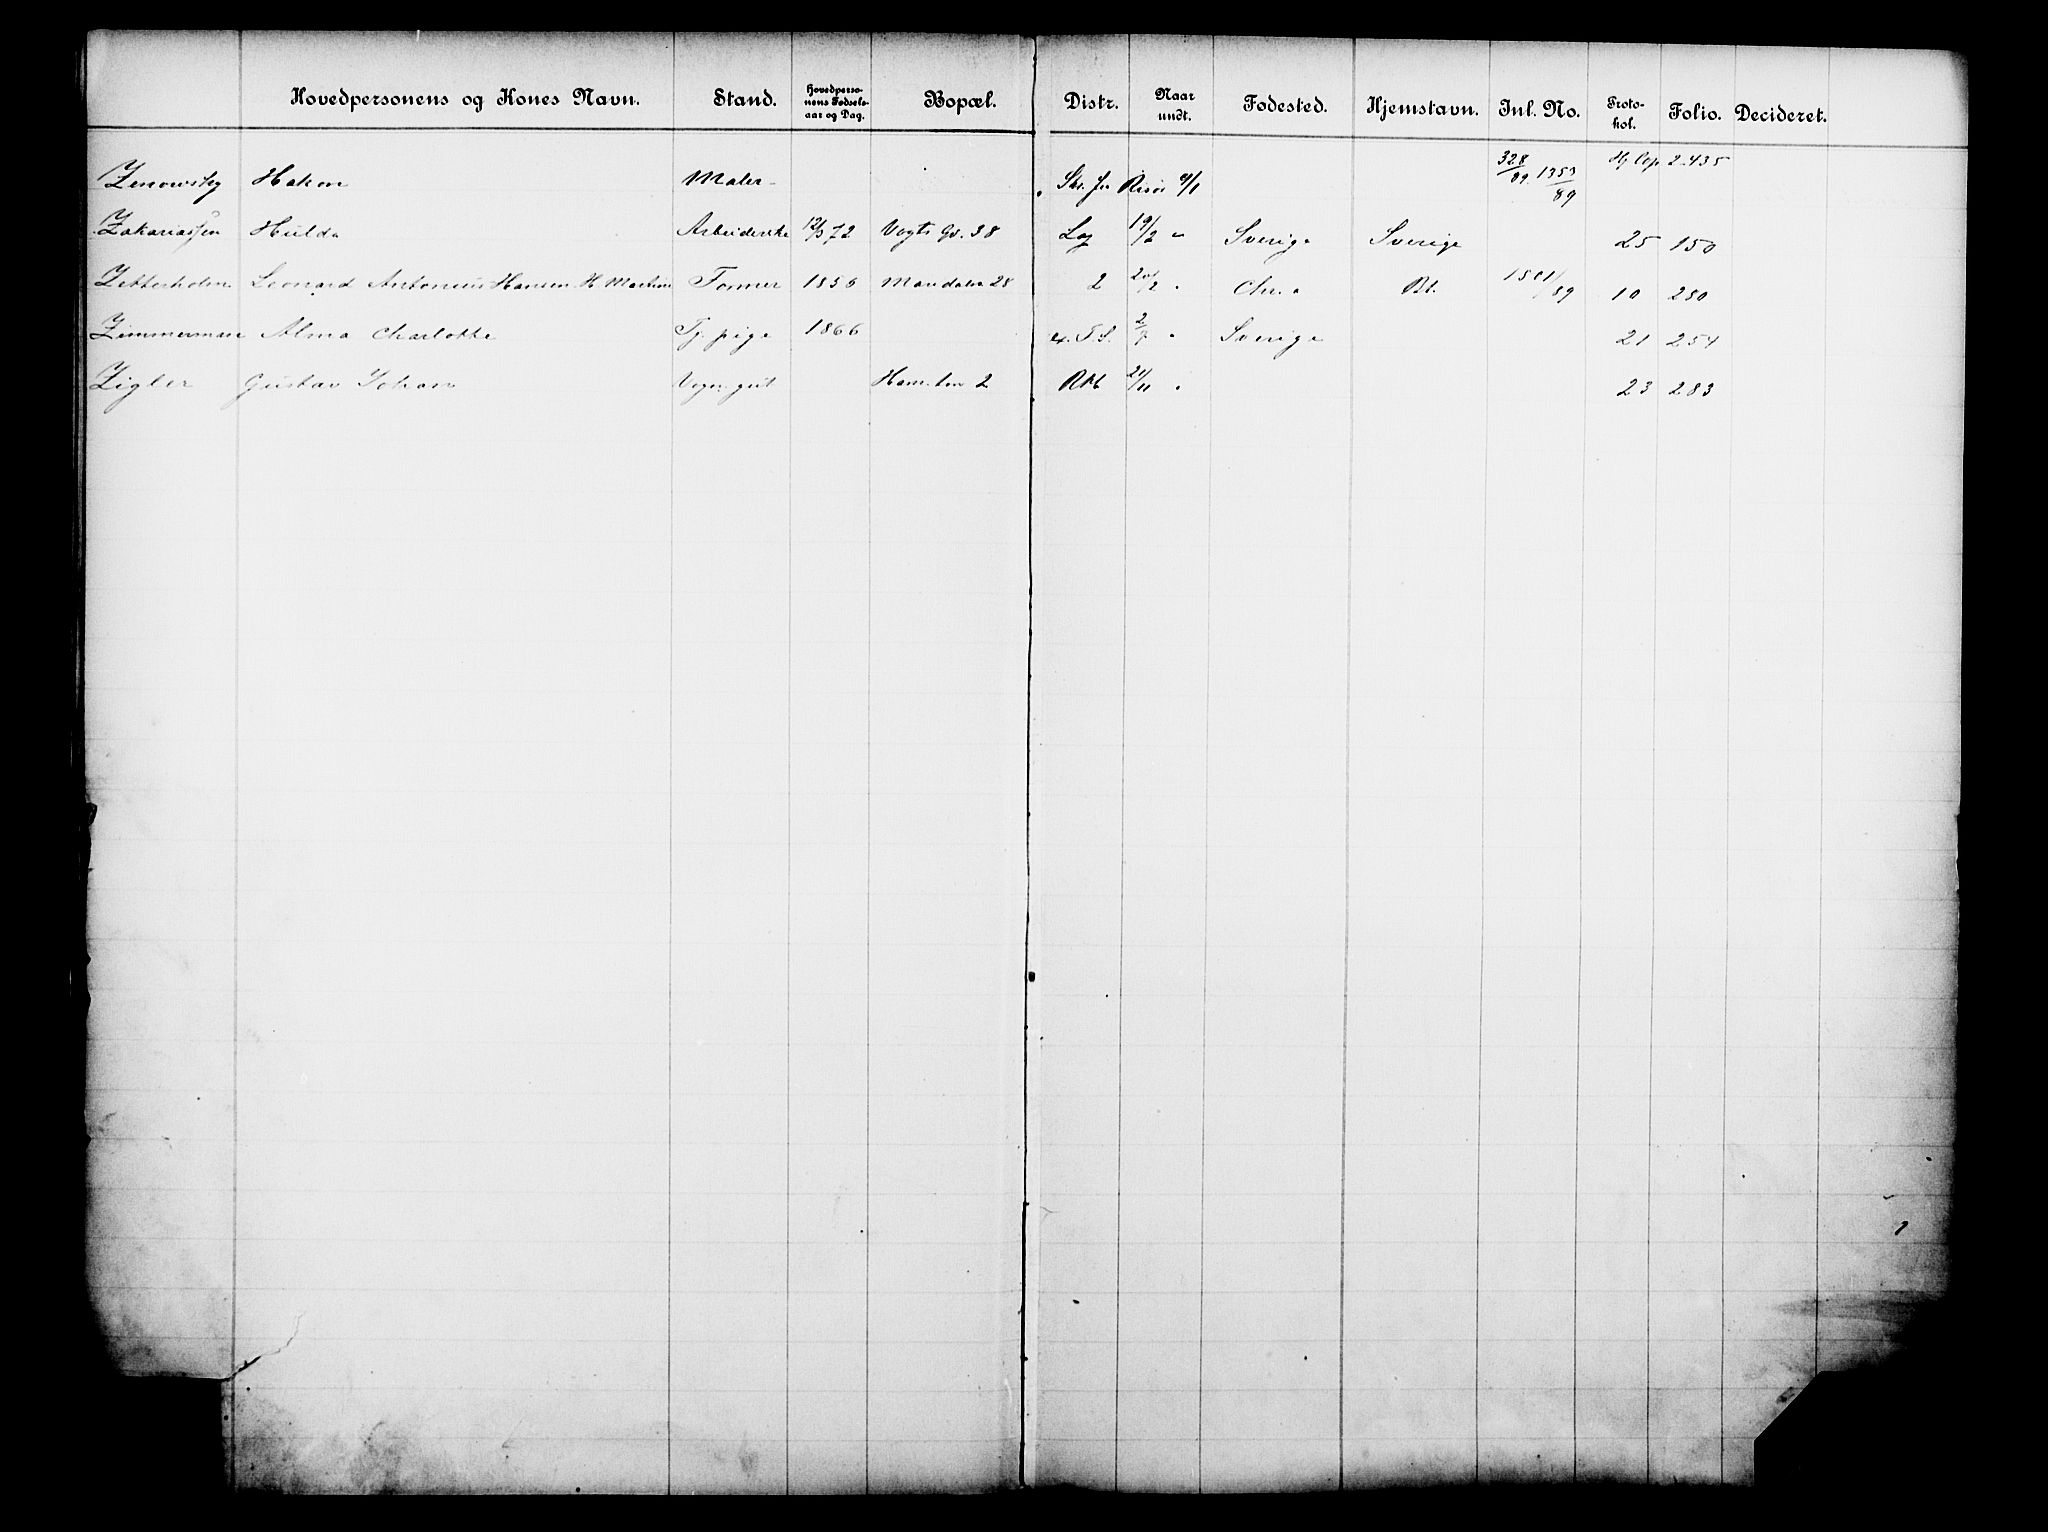 Hovedpersonens og Kones Navn. Stand. Hovedpersonens Fødselsaar og Dag. Bopæl. Distr. Naar undt. Fødested. Hjemstavn. Inl. No. Protokol. Folio. Decideret.
Zenowsky Hakon Maler Risør 9/1 328/89. 1353/89 Hj Cop 2.435
Zakariassen Hulda Arbeiderske 12/3 72 Vogts Gd. 38 Lag 19/2 " Sverige Sverige 25 150
Zetterholm Leonard Antonius Hansen H Martin Former 1856 Mandals 28 2 20/2 " Chr.a Bt. 1501/89 10 280
Zimmerman Alma Charlotte Tj. pige 1866 ex. T.S. 2/7 " Sverige 21 254
Zigler Gustav Johan Vogn. gut 2 Rkb 21/11 " 23 283